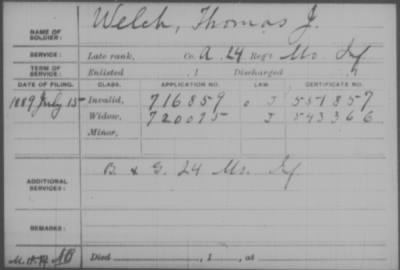 NAME OF SOLDIER: Welch, Thomas J.
SERVICE: Late rank, Co. A. 24 Reg't Mo. Inf
TERM OF SERVICE: Enlisted , 1 Discharged , 1
DATE OF FILING. CLASS. APPLICATION NO. LAW. CERTIFICATE NO.
1889 July 15 Invalid, 716859 J 551857
Widow, 720075 J 543366
Minor,
ADDITIONAL SERVICES: B & G. 24 Mo. Inf
REMARKS:
Died , 1 , at